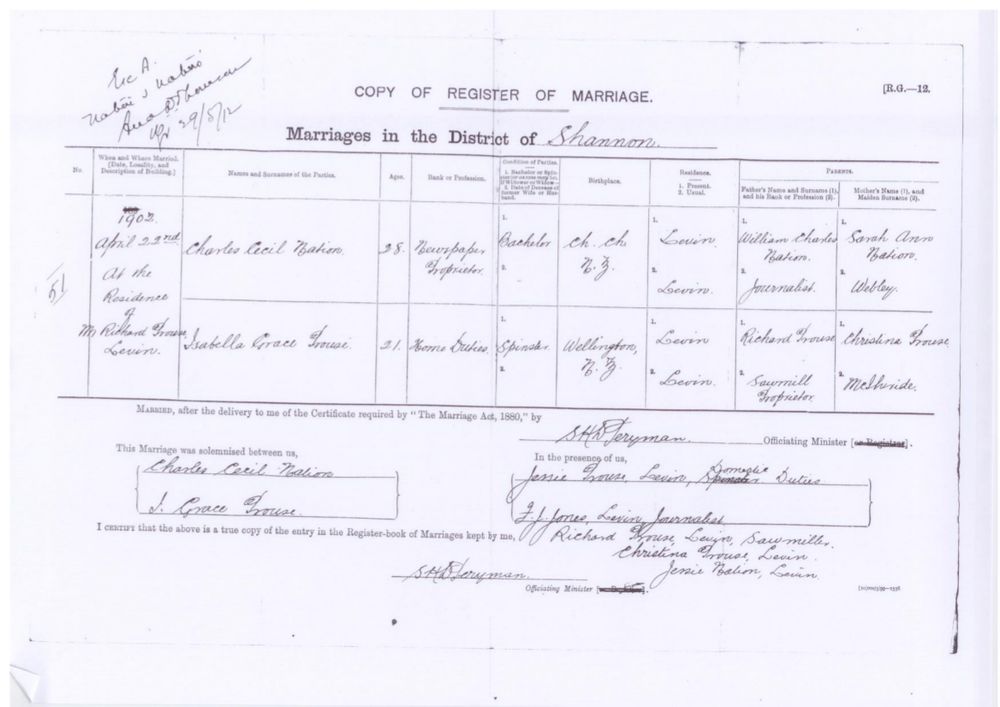 COPY OF REGISTER OF MARRIAGE.
[R.G.—12.
29/5/12
Marriages in the District of Shannon.
No.
When and Where Married. (Date, Locality, and Description of Building.)
Names and Surnames of the Parties.
Ages.
Rank or Profession.
Condition of Parties.
1. Bachelor or Spinster
2. Date of Decease of former Wife or Husband.
Birthplace.
Residence.
1. Present.
2. Usual.
PARENTS.
Father's Name and Surname (1), and his Rank or Profession (2).
Mother's Name (1), and Maiden Surname (2).
51
1902
April 22nd
At the
Residence
of
Mr Richard Prouse
Levin.
Charles Cecil Nation
28.
Newspaper
Proprietor.
1.
Bachelor
2.
Ch. Ch.
N.Z.
1.
Levin.
2.
Levin.
1.
William Charles
Nation.
2.
Journalist.
1.
Sarah Ann
Nation.
2.
Webley.
Isabella Grace Prouse.
21.
Home Duties.
1.
Spinster
2.
Wellington,
N.Z.
1.
Levin
2.
Levin.
1.
Richard Prouse
2.
Sawmill
Proprietor.
1.
Christina Prouse
2.
MARRIED, after the delivery to me of the Certificate required by "The Marriage Act, 1880," by
Officiating Minister [or Registrar].
This Marriage was solemnised between us,
Charles Cecil Nation
I. Grace Prouse.
In the presence of us,
Jessie Prouse, Levin, Domestic Duties
F. J. Jones, Levin, Journalist
Richard Prouse, Levin, Sawmiller.
Christina Prouse, Levin.
Jessie Nation, Levin
I CERTIFY that the above is a true copy of the entry in the Register-book of Marriages kept by me,
Officiating Minister